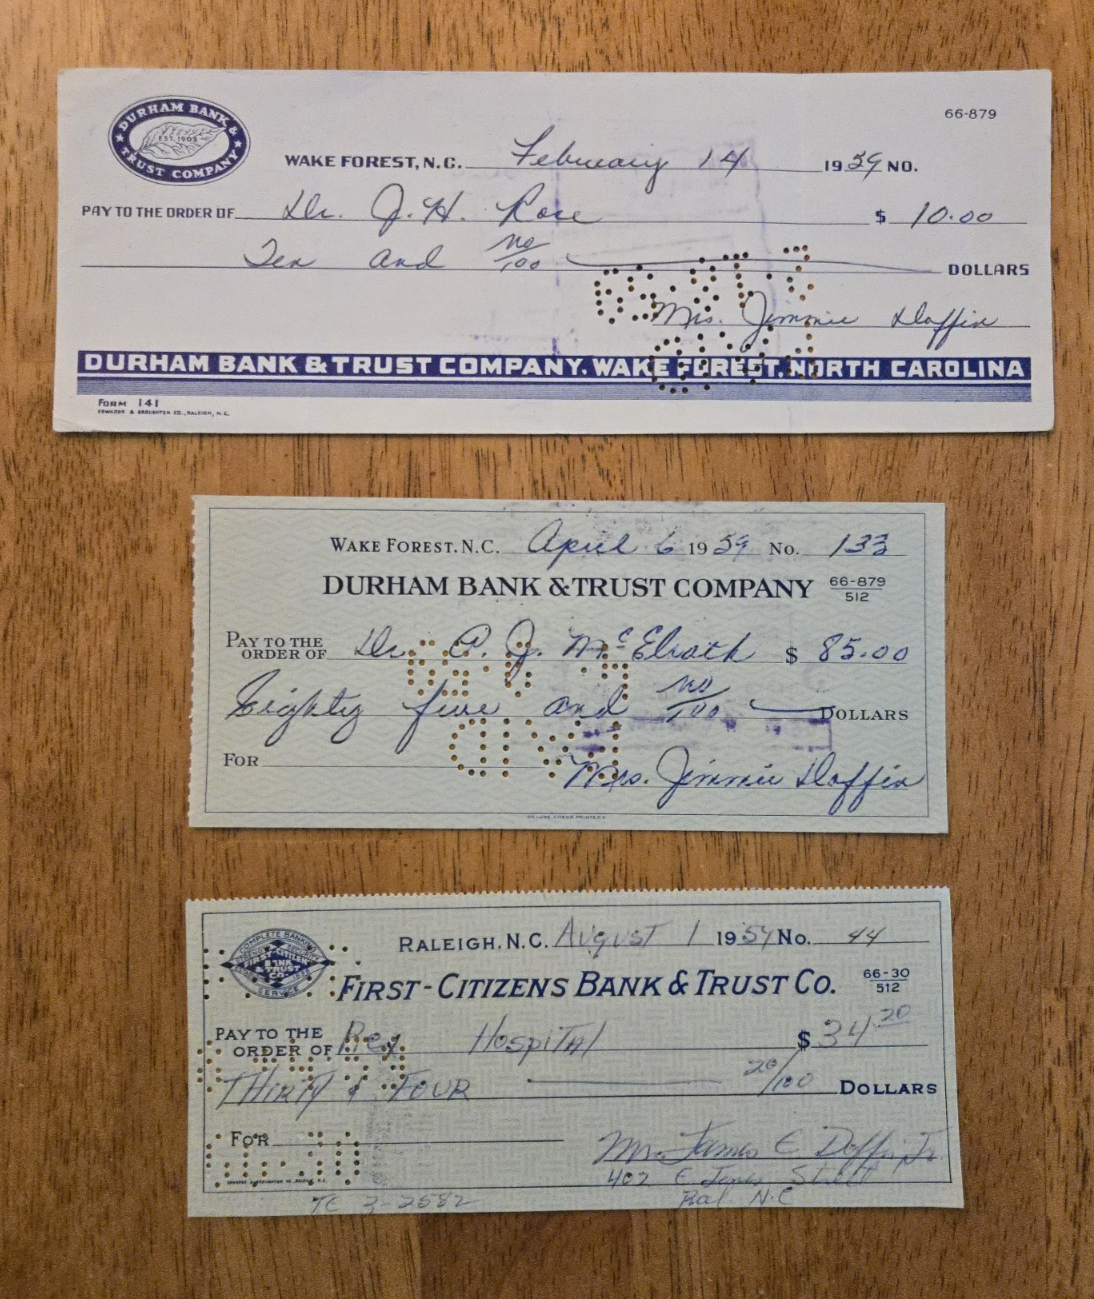 66-879
DURHAM BANK & TRUST COMPANY
EST. 1903
WAKE FOREST, N.C. February 14 1959 NO.
PAY TO THE ORDER OF Dr. J. H. Rose $ 10.00
Ten and no/100 DOLLARS
Mrs. Jimmie Daffin
DURHAM BANK & TRUST COMPANY. WAKE FOREST, NORTH CAROLINA
FORM 141
EDWARDS & BROUGHTON CO., RALEIGH, N.C.
WAKE FOREST. N.C. April 6 1959 NO. 133
DURHAM BANK & TRUST COMPANY 66-879/512
PAY TO THE ORDER OF Dr. P. J. McElrath $ 85.00
Eighty five and no/100 DOLLARS
PAID
FOR
Mrs. Jimmie Daffin
DE LUXE CHECK PRINTERS
RALEIGH, N.C. August 1 1959 No. 44
COMPLETE BANKING
FIRST-CITIZENS BANK & TRUST CO.
SERVICE
FIRST-CITIZENS BANK & TRUST CO. 66-30/512
PAY TO THE ORDER OF Rex Hospital $ 34 20
THIRTY & FOUR 20/100 DOLLARS
FOR
James E Daffin Jr.
402 E Jones Street
TE 3-2582 Ral N.C